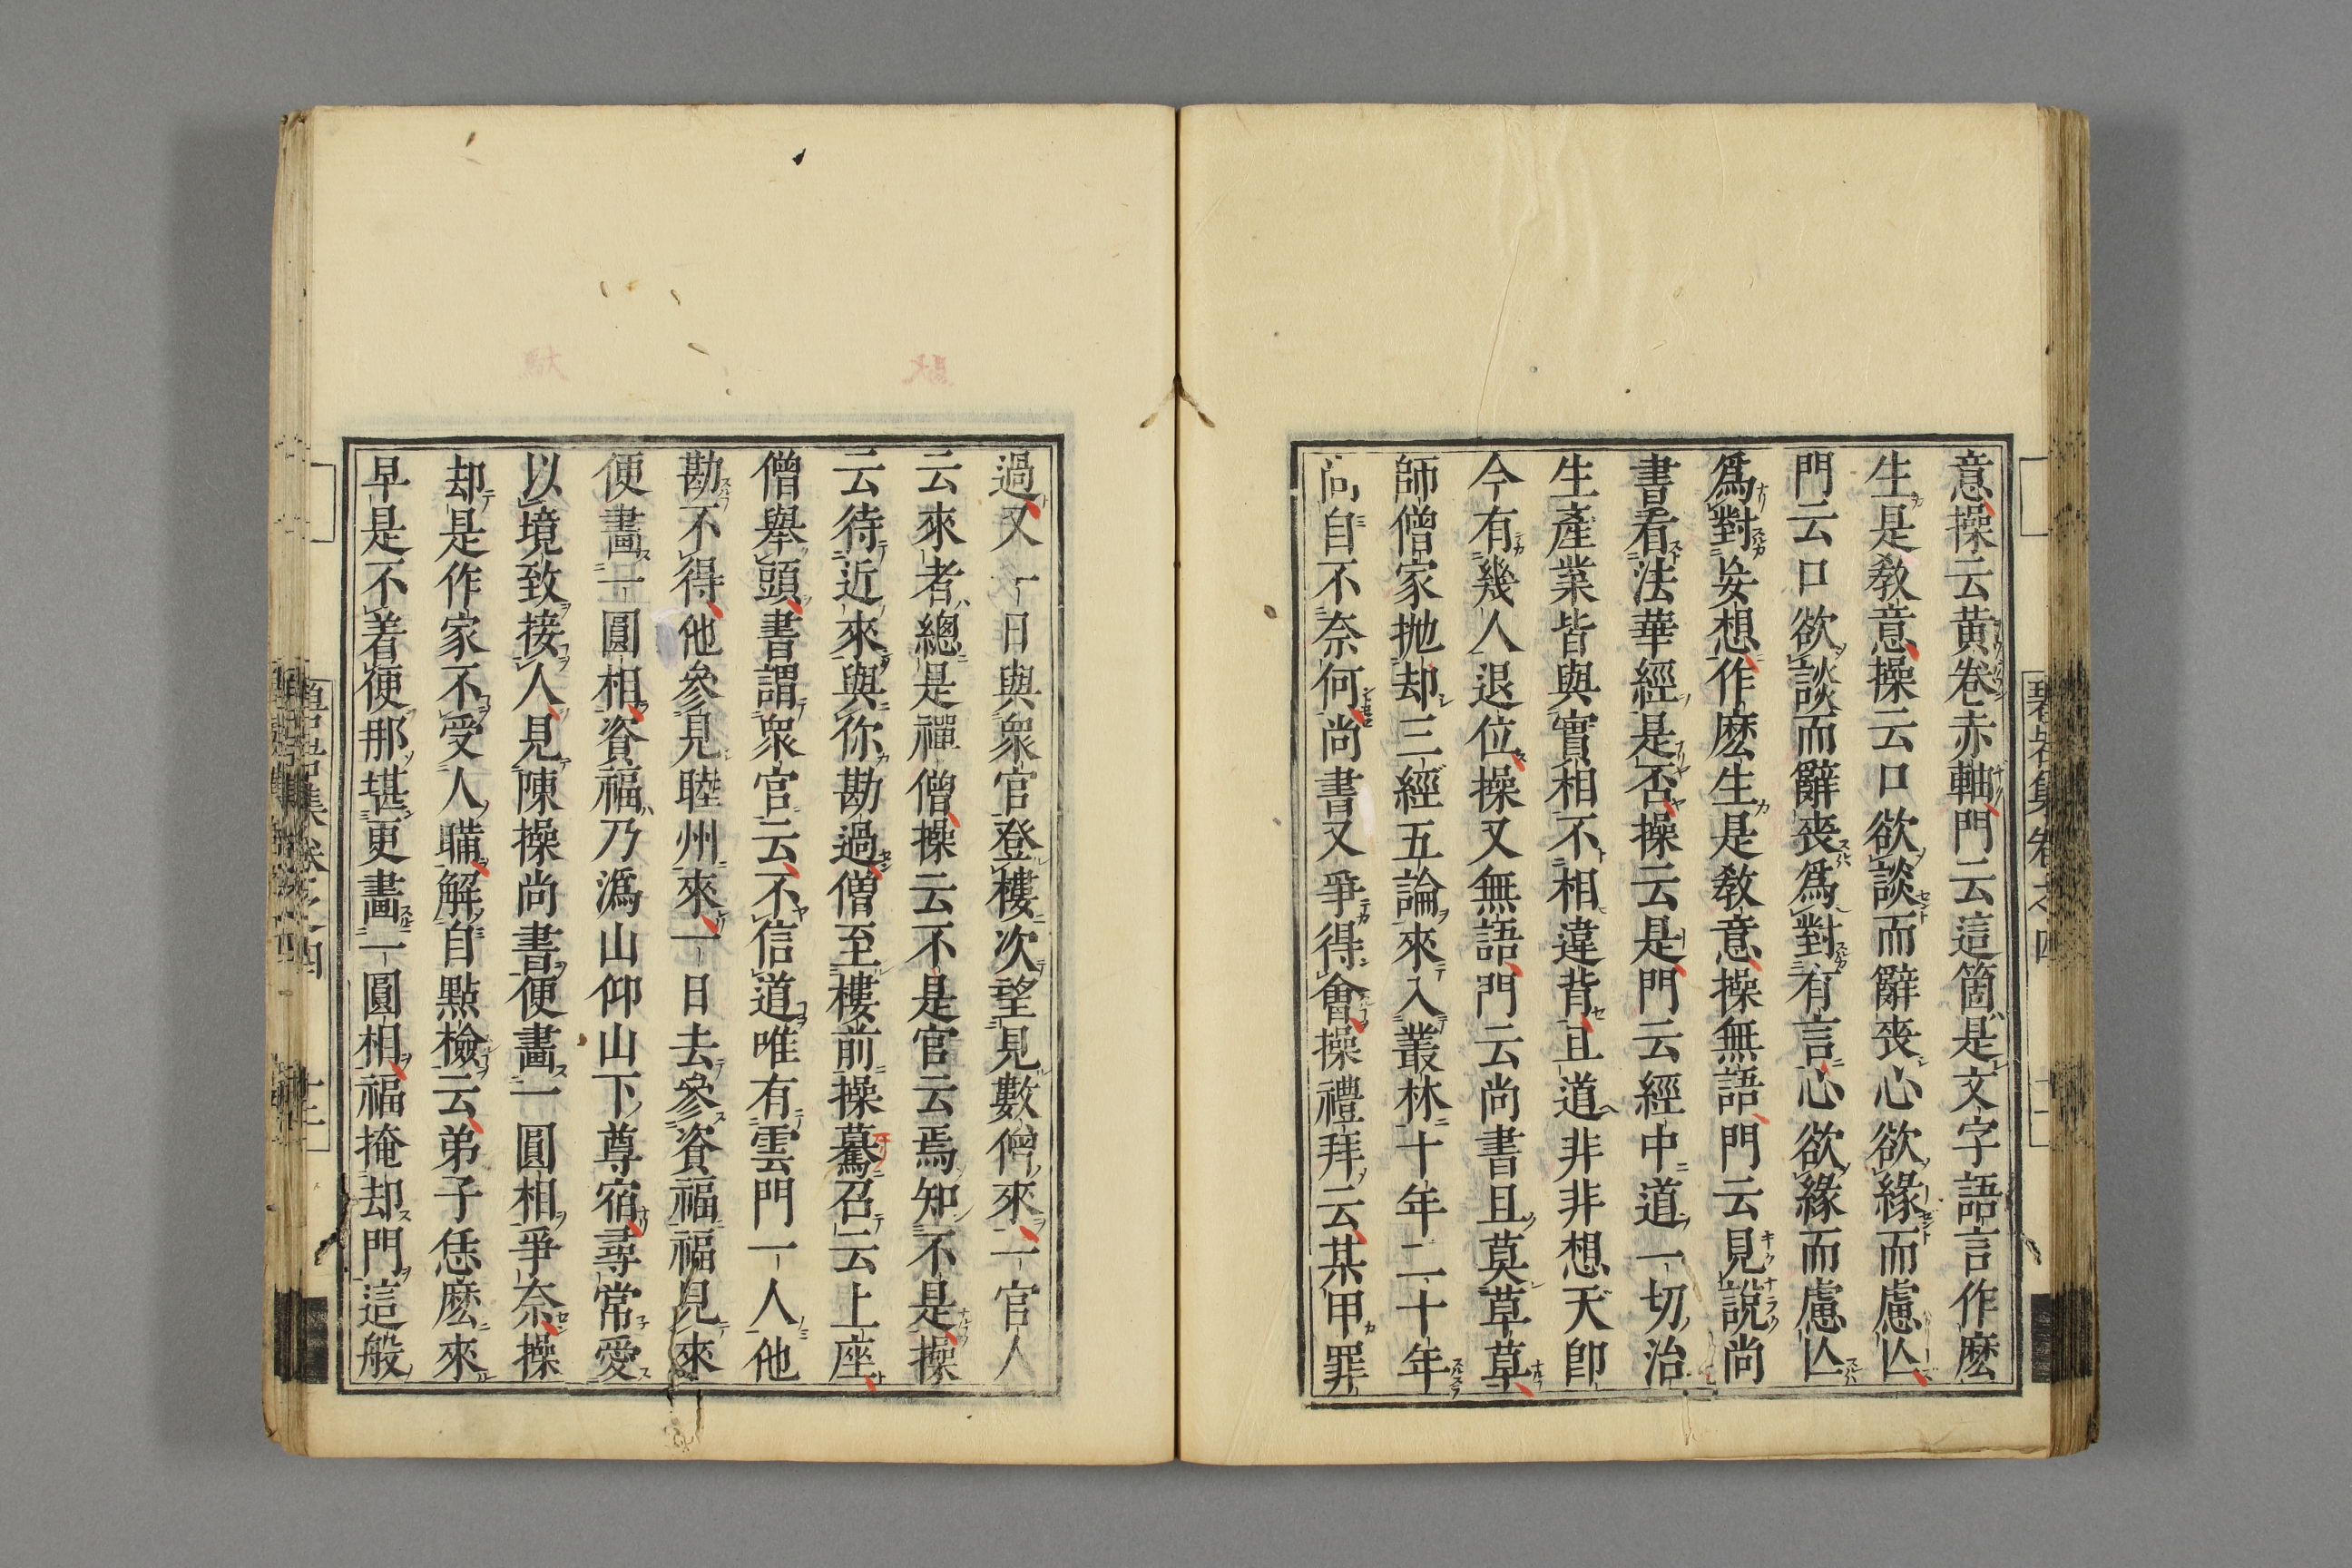 意操云黃卷赤軸門云這箇是文字語言作麽
生是教意操云口欲談而辭喪心欲緣而慮亾
門云口欲談而辭喪爲對有言心欲緣而慮亾
爲對妄想作麽生是教意操無語門云見說尚
書看法華經是否操云是門云經中道一切治
生產業皆與實相不相違背且道非非想天卽
今有幾人退位操又無語門云尚書且莫草草
師僧家抛却三經五論來入叢林十年二十年
尚自不奈何尚書又爭得會操禮拜云某甲罪
過又一日與衆官登樓次望見數僧來一官人
云來者總是禪僧操云不是官云焉知不是操
云待近來與你勘過僧至樓前操驀召云上座
僧舉頭書謂衆官云不信道唯有雲門一人他
勘不得他參見睦州來一日去參資福福見來
便畫一圓相資福乃潙山仰山下尊宿尋常愛
以境致接人見陳操尚書便畫一圓相爭奈操
却是作家不受人瞞解自點檢云弟子恁麽來
早是不着便那堪更畫一圓相福掩却門這般